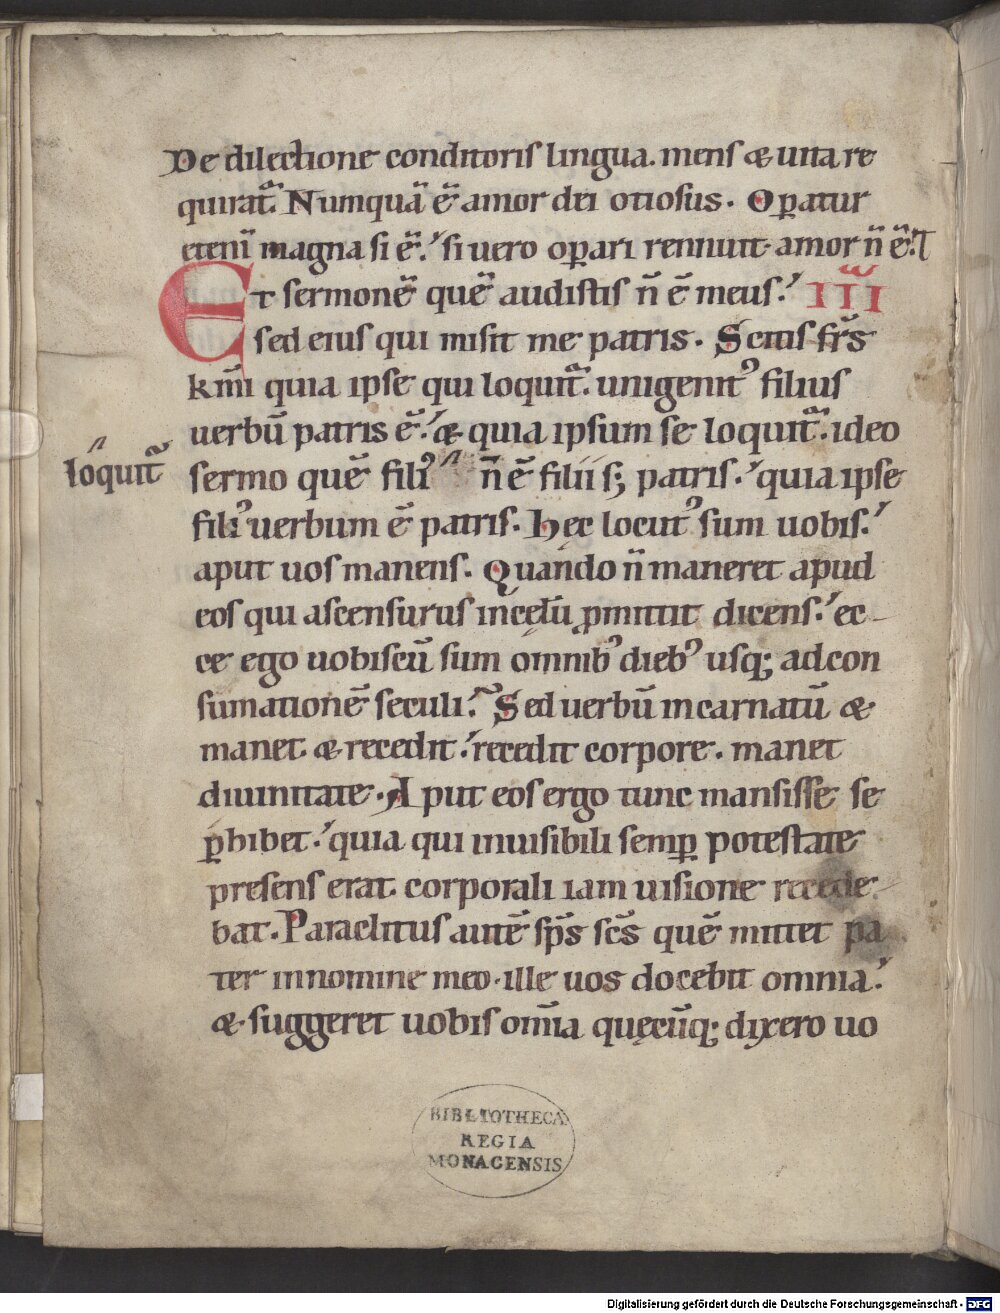 De dilectione conditoris lingua. mens & uita re
quirat᷑. Numquā ē amor dei otiosus. Oꝑatur
eteni̅ magna si ē. si uero oꝑari rennuit. amor n̄ ē. T
Et sermonē quē audistis n̄ ē meus. III
sed eius qui misit me patris. Scitis fr̄s
kmi̅ quia ipse qui loquit᷑. unigenitꝰ filius
uerbū patris ē. & quia ipsum se loquit᷑. ideo
loquit᷑
sermo quē filiꝰ n̄ ē filii s; patris. quia ipse
filiꝰ uerbum ē patris. Hęc locutꝰ sum uobis.
aput uos manens. Quando n̄ maneret apud
eos qui ascensurus in cęlū ꝓmittit dicens. ec
ce ego uobiscū sum omnibꝰ diebꝰ usq; ad con
sumationē seculi. Sed uerbū incarnatū &
manet. & recedit. recedit corpore. manet
diuinitate. Aput eos ergo tunc mansisse se
ꝑhibet. quia qui inuisibili semꝑ potestate
presens erat. corporali iam uisione recede
bat. Paraclitus autē sp̄s sc̄s quē mittet pa
ter in nomine meo. ille uos docebit omnia.
& suggeret uobis om̄ia quęcūq; dixero uo
BIBLIOTHECA
REGIA
MONACENSIS
Digitalisierung gefördert durch die Deutsche Forschungsgemeinschaft - DFG